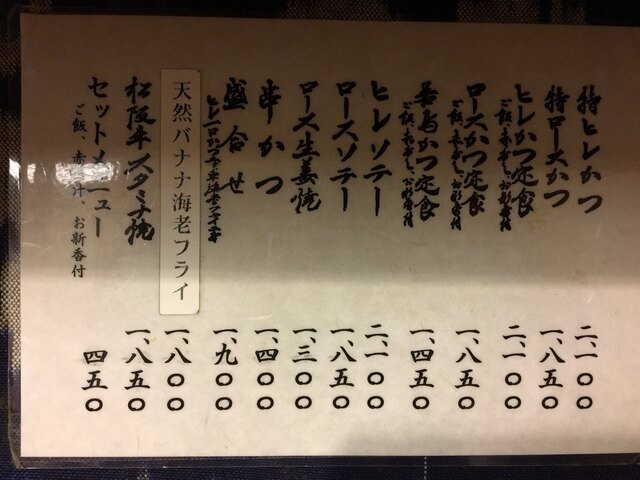 特ヒレかつ 二、一〇〇
特ロースかつ 一、八五〇
ヒレかつ定食 二、一〇〇
ご飯、赤だし、お新香付
ロースかつ定食 一、八五〇
ご飯、赤だし、お新香付
若鳥かつ定食 一、四五〇
ご飯、赤だし、お新香付
ヒレソテー 二、一〇〇
ロースソテー 一、八五〇
ロース生姜焼 一、三〇〇
串かつ 一、四〇〇
盛合せ 一、九〇〇
天然バナナ海老フライ 一、八〇〇
松阪牛スタミナ焼 一、八五〇
セットメニュー 四五〇
ご飯、赤だし汁、お新香付